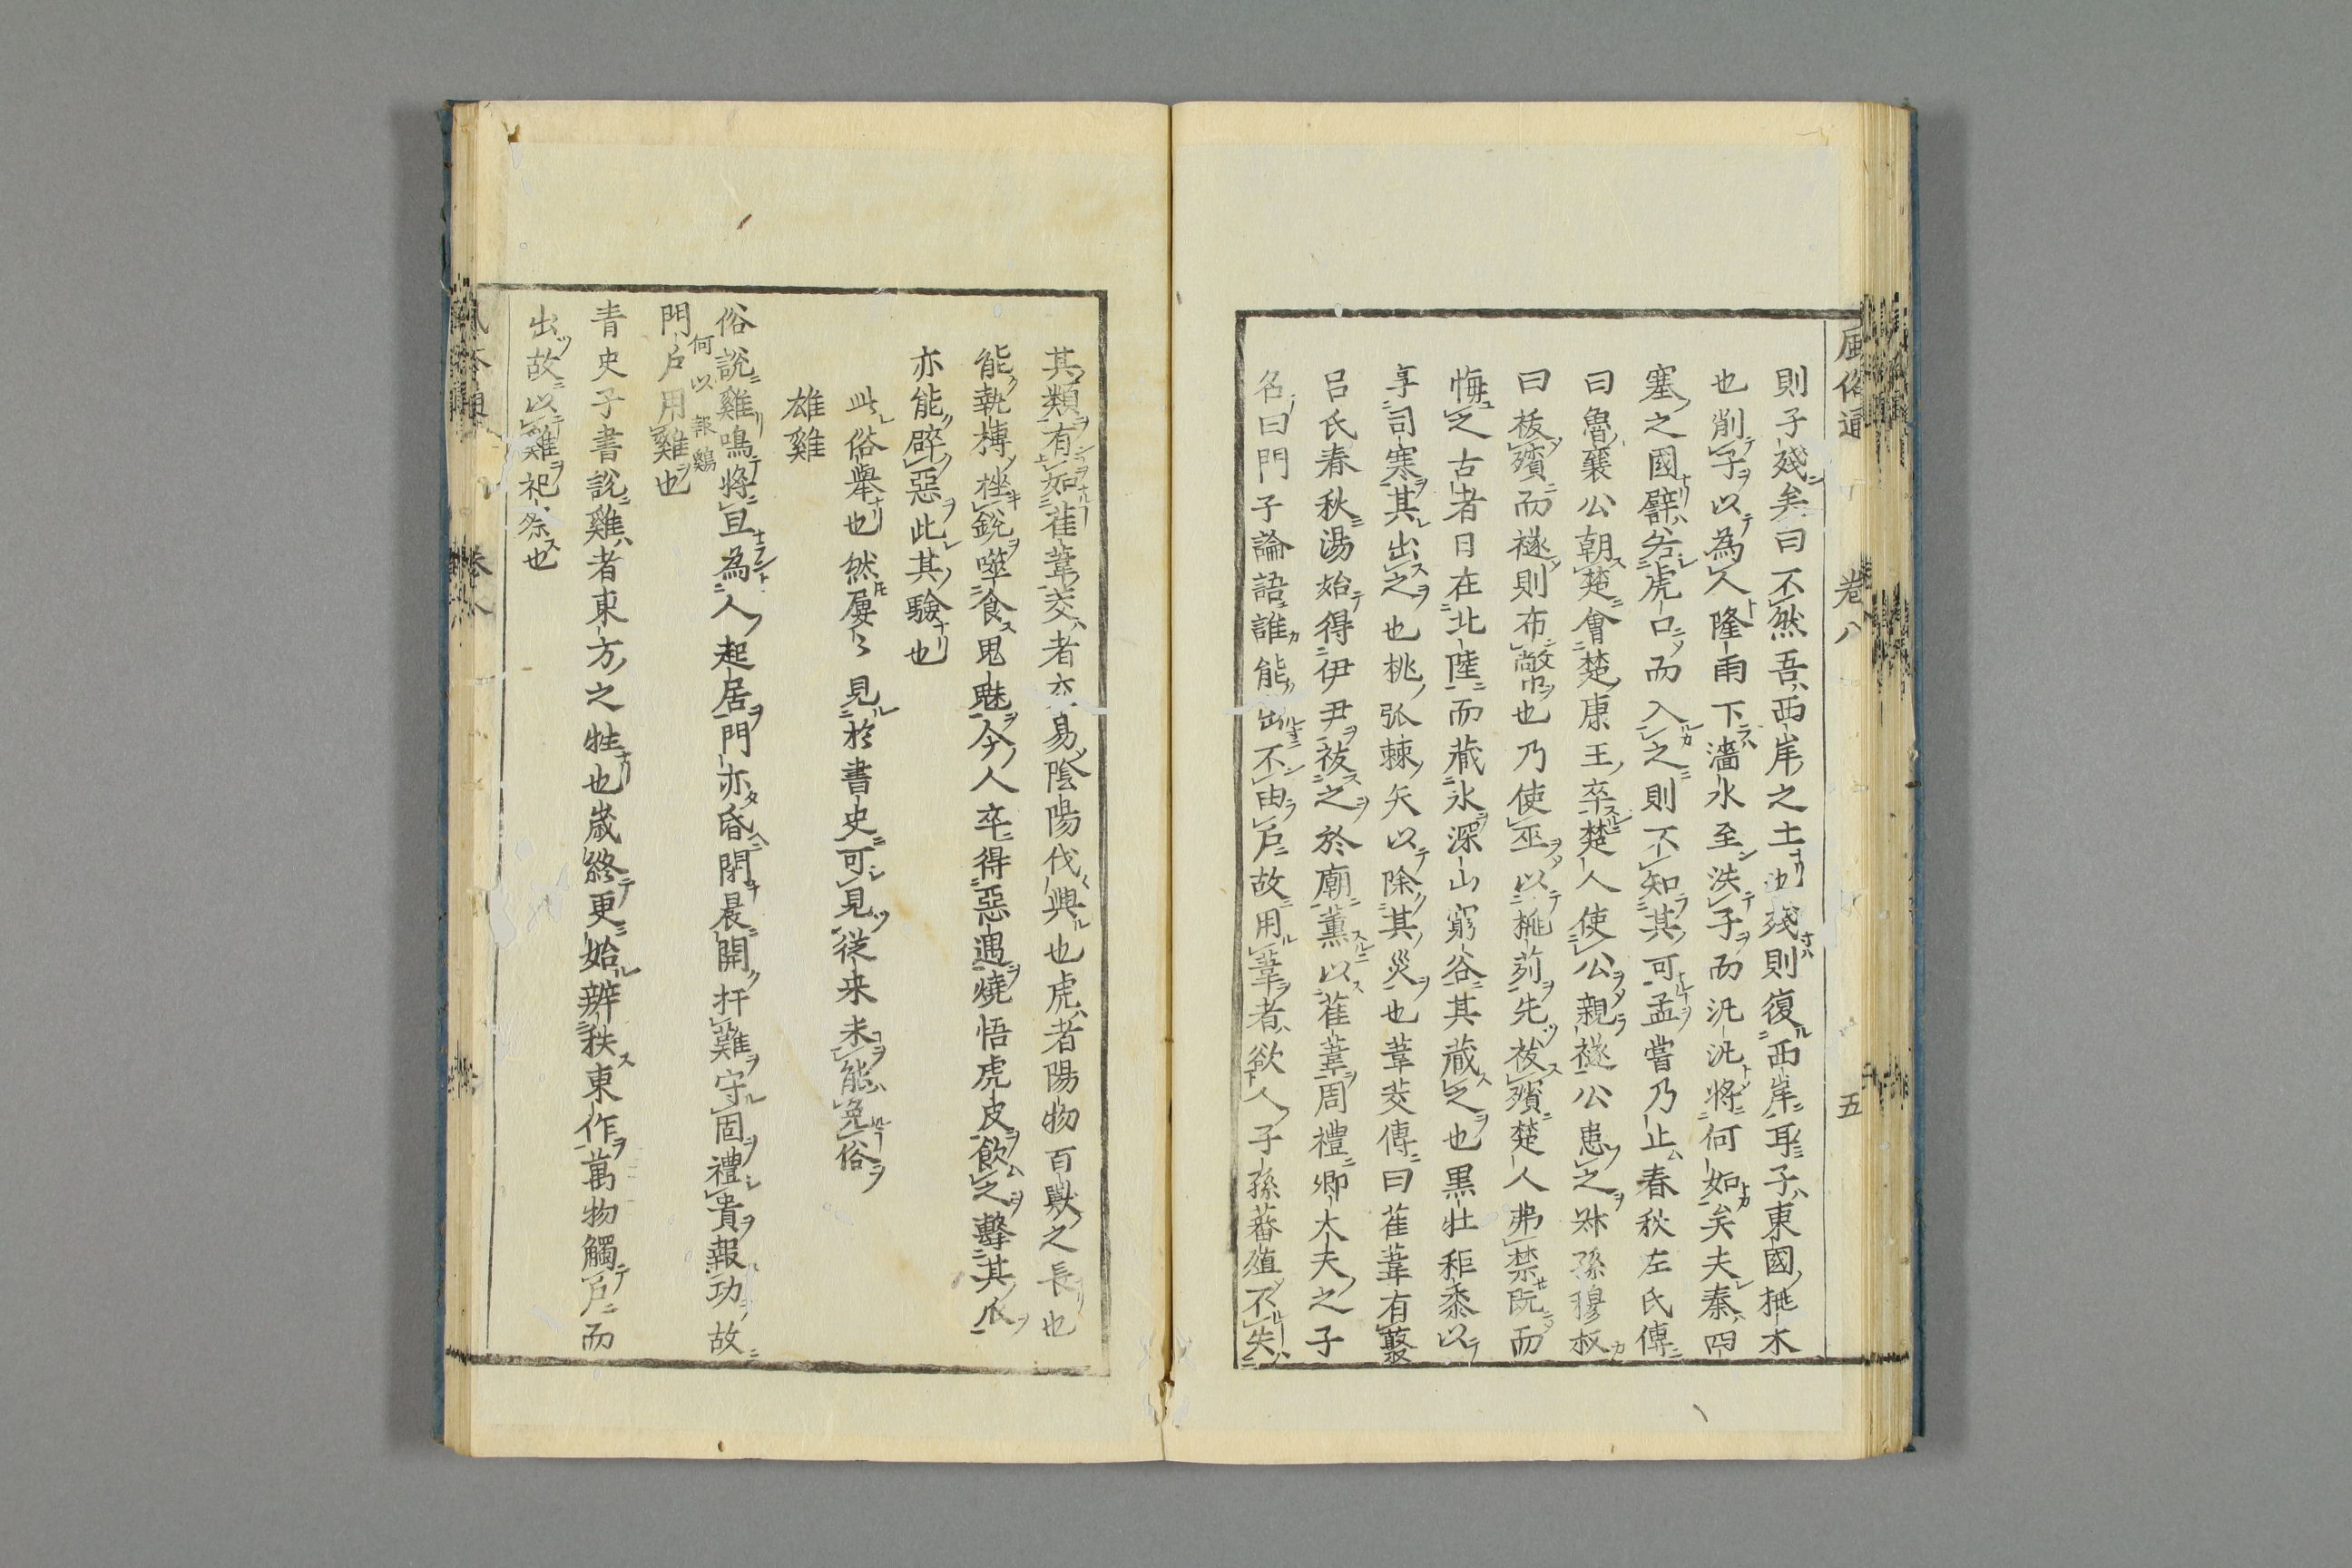 風俗通 卷八 五
則子殘矣曰不然吾西岸之土也殘則復西岸耳子東國桃木
也削子以為人隆雨下濇水至泆子而汎汎將何如矣夫秦四
塞之國譬若虎口而入之則不知其可孟嘗乃止春秋左氏傳
曰魯襄公朝楚會楚康王卒楚人使公親襚公患之叔孫穆叔
曰祓殯而襚則布幣也乃使巫以桃茢先祓殯楚人弗禁既而
悔之古者日在北陸而藏氷深山窮谷其藏之也黑牡秬黍以
享司寒其出之也桃弧棘矢以除其災也葦茭傳曰萑葦有藂
呂氏春秋湯始得伊尹祓之於廟薰以萑葦周禮卿大夫之子
名曰門子論語誰能出不由戶故用葦者欲人子孫蕃殖不失
其類有如萑葦茭者交易陰陽代興也虎者陽物百獸之長也
能執搏挫銳噬食鬼魅今人卒得惡遇燒悟虎皮飲之擊其爪
亦能辟惡此其驗也
此俗舉也然屢〻見於書史可見從来未能免俗
雄雞
俗說雞鳴將旦為人起居門亦昏閉晨開扞難守固禮貴報功故
門戶用雞也
何以報鷄
青史子書說雞者東方之牲也歲終更始辨秩東作萬物觸戶而
出故以雞祀祭也